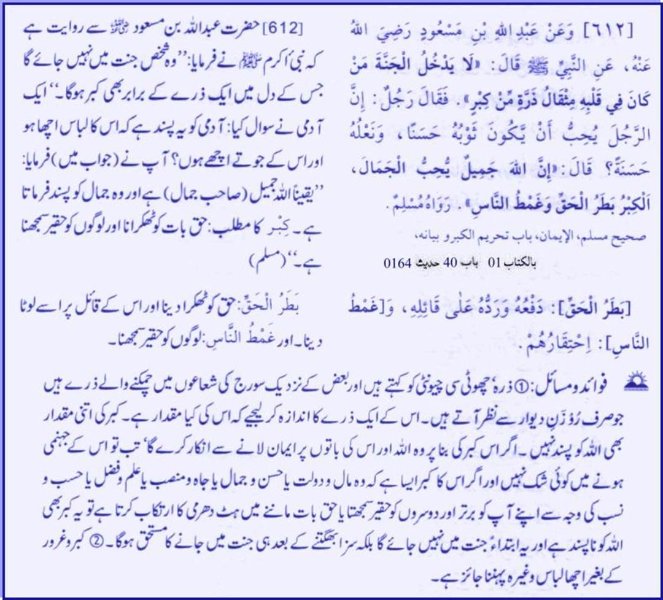 [٦١٢] وَعَنْ عَبْدِ اللهِ بْنِ مَسْعُودٍ رَضِيَ اللهُ
عَنْهُ، عَنِ النَّبِيِّ ﷺ قَالَ: «لَا يَدْخُلُ الْجَنَّةَ مَنْ
كَانَ فِي قَلْبِهِ مِثْقَالُ ذَرَّةٍ مِّنْ كِبْرٍ». فَقَالَ رَجُلٌ: إِنَّ
الرَّجُلَ يُحِبُّ أَنْ يَّكُونَ ثَوْبُهُ حَسَنًا، وَنَعْلُهُ
حَسَنَةً؟ قَالَ: «إِنَّ اللهَ جَمِيلٌ يُّحِبُّ الْجَمَالَ،
اَلْكِبْرُ بَطَرُ الْحَقِّ وَغَمْطُ النَّاسِ». رَوَاهُ مُسْلِمٌ.
صحيح مسلم، الإيمان، باب تحريم الكبر و بيانه،
بالكتاب 01 باب 40 حديث 0164
[612] حضرت عبداللہ بن مسعود ﷜ سے روایت ہے
کہ نبیٔ اکرم ﷺ نے فرمایا: ’’وہ شخص جنت میں نہیں جائے گا
جس کے دل میں ایک ذرے کے برابر بھی کبر ہوگا۔‘‘ ایک
آدمی نے سوال کیا: آدمی کو یہ پسند ہے کہ اس کا لباس اچھا ہو
اور اس کے جوتے اچھے ہوں؟ آپ نے (جواب میں) فرمایا:
’’یقیناً اللہ جمیل (صاحب جمال) ہے اور وہ جمال کو پسند فرماتا
ہے۔ کِبْر کا مطلب: حق بات کو ٹھکرانا اور لوگوں کو حقیر سمجھنا
ہے۔‘‘ (مسلم)
[بَطَرُ الْحَقِّ]: دَفْعُهُ وَرَدُّهُ عَلٰى قَائِلِهِ، وَ[غَمْطُ
النَّاسِ]: اِحْتِقَارُهُمْ.
بَطَرُ الْحَقِّ: حق کو ٹھکرا دینا اور اس کے قائل پر اسے لوٹا
دینا۔ اور غَمْطُ النَّاسِ: لوگوں کو حقیر سمجھنا۔
فوائد و مسائل: ① ذرہ‘ چھوٹی سی چیونٹی کو کہتے ہیں اور بعض کے نزدیک سورج کی شعاعوں میں چمکنے والے ذرے ہیں
جو صرف روزنِ دیوار سے نظر آتے ہیں۔ اس کے ایک ذرے کا اندازہ کر لیجیے کہ اس کی کیا مقدار ہے۔ کبر کی اتنی مقدار
بھی اللہ کو پسند نہیں۔ اگر اس کبر کی بنا پر وہ اللہ اور اس کی باتوں پر ایمان لانے سے انکار کرے گا‘ تب تو اس کے جہنمی
ہونے میں کوئی شک نہیں اور اگر اس کا کبر ایسا ہے کہ وہ مال و دولت یا حسن و جمال یا جاہ و منصب یا علم و فضل یا حسب و
نسب کی وجہ سے اپنے آپ کو برتر اور دوسروں کو حقیر سمجھتا یا حق بات ماننے میں ہٹ دھرمی کا ارتکاب کرتا ہے تو یہ کبر بھی
اللہ کو ناپسند ہے اور یہ ابتداءً جنت میں نہیں جائے گا بلکہ سزا بھگتنے کے بعد ہی جنت میں جانے کا مستحق ہوگا۔ ② کبر و غرور
کے بغیر اچھا لباس وغیرہ پہننا جائز ہے۔